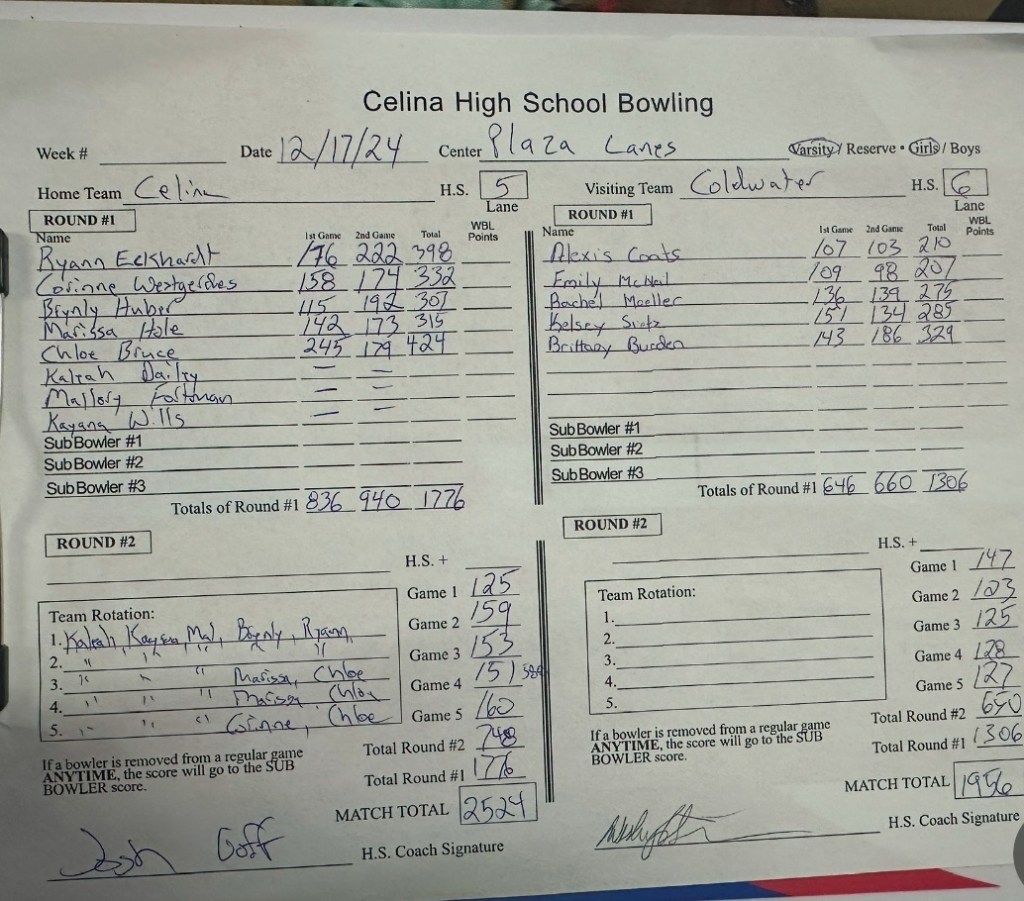 Celina High School Bowling
Week # Date 12/17/24 Center Plaza Lanes Varsity / Reserve • Girls / Boys
Home Team Celina H.S. 5 Lane
Visiting Team Coldwater H.S. 6 Lane
ROUND #1
Name 1st Game 2nd Game Total WBL Points
Ryann Eckhardt 176 222 398
Corinne 158 174 332
Brynly Huber 115 192 307
Marissa Hole 142 173 315
Chloe Bruce 245 179 424
Kaleah Dailey — —
Mallory Fortman — —
Kayana Wills — —
Sub Bowler #1
Sub Bowler #2
Sub Bowler #3
Totals of Round #1 836 940 1776
ROUND #1
Name 1st Game 2nd Game Total WBL Points
Alexis Coats 107 103 210
Emily McNeil 109 98 207
Rachel Moeller 136 139 275
Kelsey 151 134 285
Brittany Burden 143 186 329
Sub Bowler #1
Sub Bowler #2
Sub Bowler #3
Totals of Round #1 646 660 1306
ROUND #2
H.S. +
Game 1 125
Game 2 159
Game 3 153
Game 4 151
Game 5 160
Total Round #2 748
Total Round #1 1776
MATCH TOTAL 2524
Team Rotation:
1. Kaleah, Kayana, Mal, Brynly, Ryann
2. " " " " "
3. " " " Marissa, Chloe
4. " " " Marissa Chloe
5. " " " Corinne, Chloe
If a bowler is removed from a regular game
ANYTIME, the score will go to the SUB
BOWLER score.
Josh Goff H.S. Coach Signature
ROUND #2
H.S. +
Game 1 147
Game 2 123
Game 3 125
Game 4 128
Game 5 127
Total Round #2 650
Total Round #1 1306
MATCH TOTAL 1956
Team Rotation:
1.
2.
3.
4.
5.
If a bowler is removed from a regular game
ANYTIME, the score will go to the SUB
BOWLER score.
H.S. Coach Signature